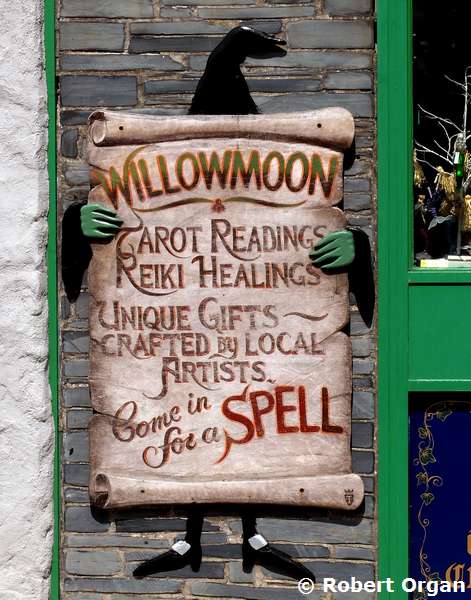 WILLOWMOON
TAROT READINGS
REIKI HEALINGS
UNIQUE GIFTS
CRAFTED by LOCAL
ARTISTS
Come in
for a SPELL
© Robert Organ